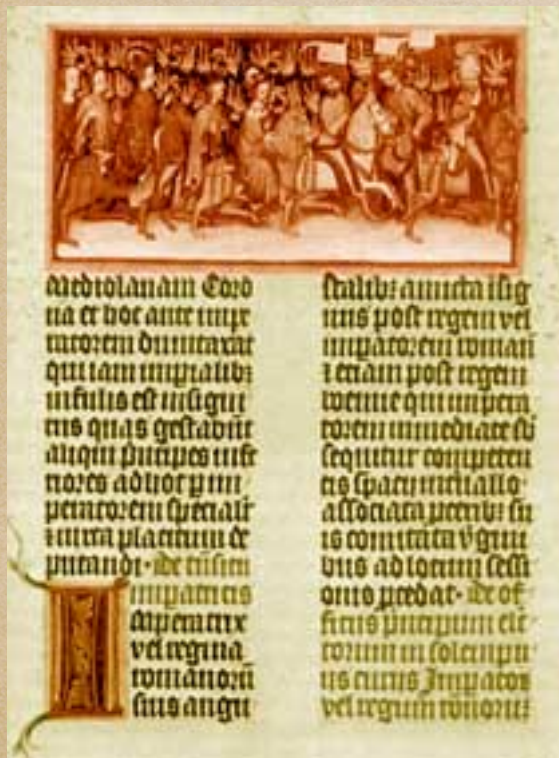 mediolanam Coro
na et hoc ante impe
ratorem dumtaxat
qui iam imp̄ialibꝫ
infulis est insigni
tus quas gestabūt
aliqui p̄ncipes infe
riores ad hoc p̄ im
peratorem specialr̄
⁊ iuxta placitum de
putandi · de
imperatricis
Imperatrix
vel regina
romanorū
suis augu
stalibꝫ amicta isig
niis post regem vel
impatorem roman
⁊ eciam post regem
boemie qui impera
torem immediate
sequitur competen
tis spacii intervallo
associata
comitata
ad locum sessi
onis p̄cedat · de of
ficiis p̄ncipum elc
torum in solempni
curiis Imperator
vel regum